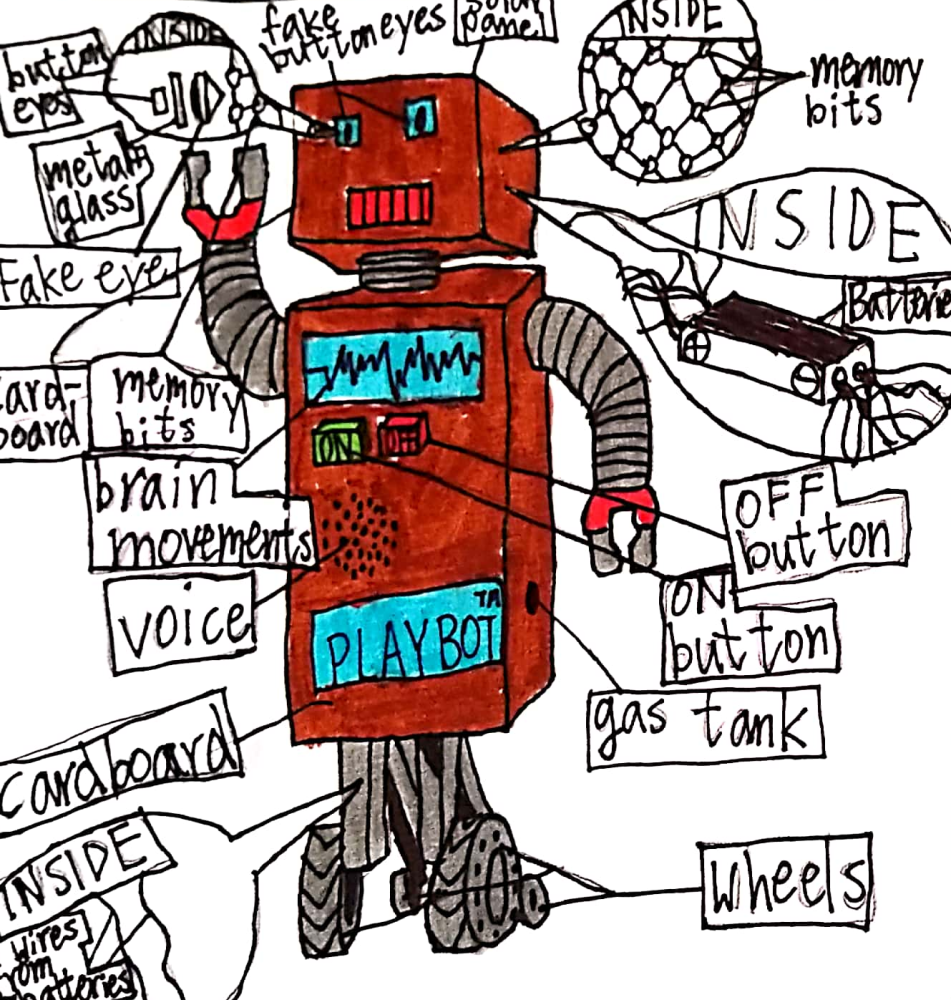 button
eyes
INSIDE
fake
button eyes
solar
panel
INSIDE
memory
bits
metal
glass
INSIDE
Fake eye
Batterie
card-
board
memory
bits
brain
movements
ON
OFF
button
voice
ON
button
PLAYBOT TM
gas tank
cardboard
INSIDE
wheels
wires
from
batteries